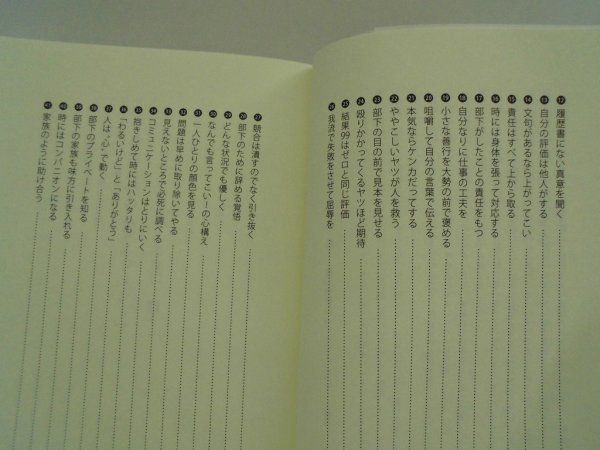 ⑫ 履歴書にない真意を聞く
⑬ 自分の評価は他人がする
⑭ 文句があるなら上がってこい
⑮ 責任はすべて上から取る
⑯ 時には身体を張って対応する
⑰ 部下がしたことの責任をもつ
⑱ 自分なりに仕事の工夫を
⑲ 小さな善行を大勢の前で褒める
⑳ 咀嚼して自分の言葉で伝える
㉑ 本気ならケンカだってする
㉒ ややこしいヤツが人を救う
㉓ 部下の目の前で見本を見せる
㉔ 殴りかかってくるヤツほど期待
㉕ 結果99はゼロと同じ評価
㉖ 我流で失敗をさせて屈辱を
㉗ 競合は潰すのでなく引き抜く
㉘ 部下のために辞める覚悟
㉙ どんな状況でも優しく
㉚ なんでも言ってこい！の心構え
㉛ 一人ひとりの顔色を見る
㉜ 問題は早めに取り除いてやる
㉝ 見えないところで必死に調べる
㉞ コミュニケーションはとりにいく
㉟ 抱きしめて時にはハッタリも
㊱ 「わるいけど」と「ありがとう」
㊲ 人は“心”で動く
㊳ 部下のプライベートを知る
㊴ 部下の家族も味方に引き入れる
㊵ 時にはコンパニオンになる
㊶ 家族のように助け合う